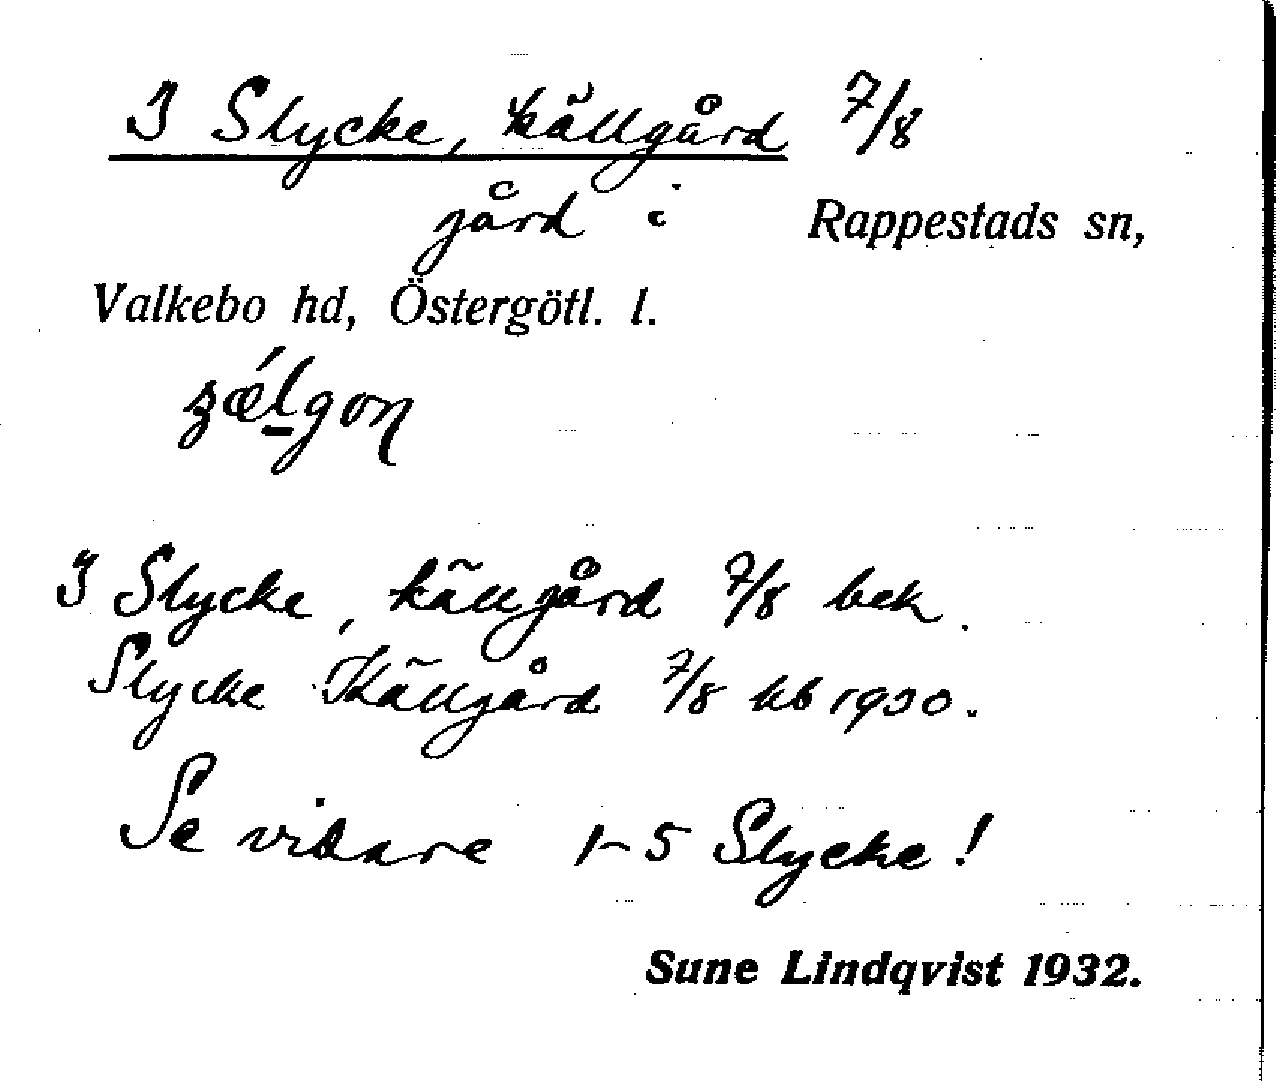 3 Slycke, källgård 7/8
gård i Rappestads sn,
Valkebo hd, Östergötl. l.
3 Slycke, källgård 7/8 bek.
Slycke Källgård 7/8 kb 1930.
Se vidare 1-5 Slycke!
Sune Lindqvist 1932.